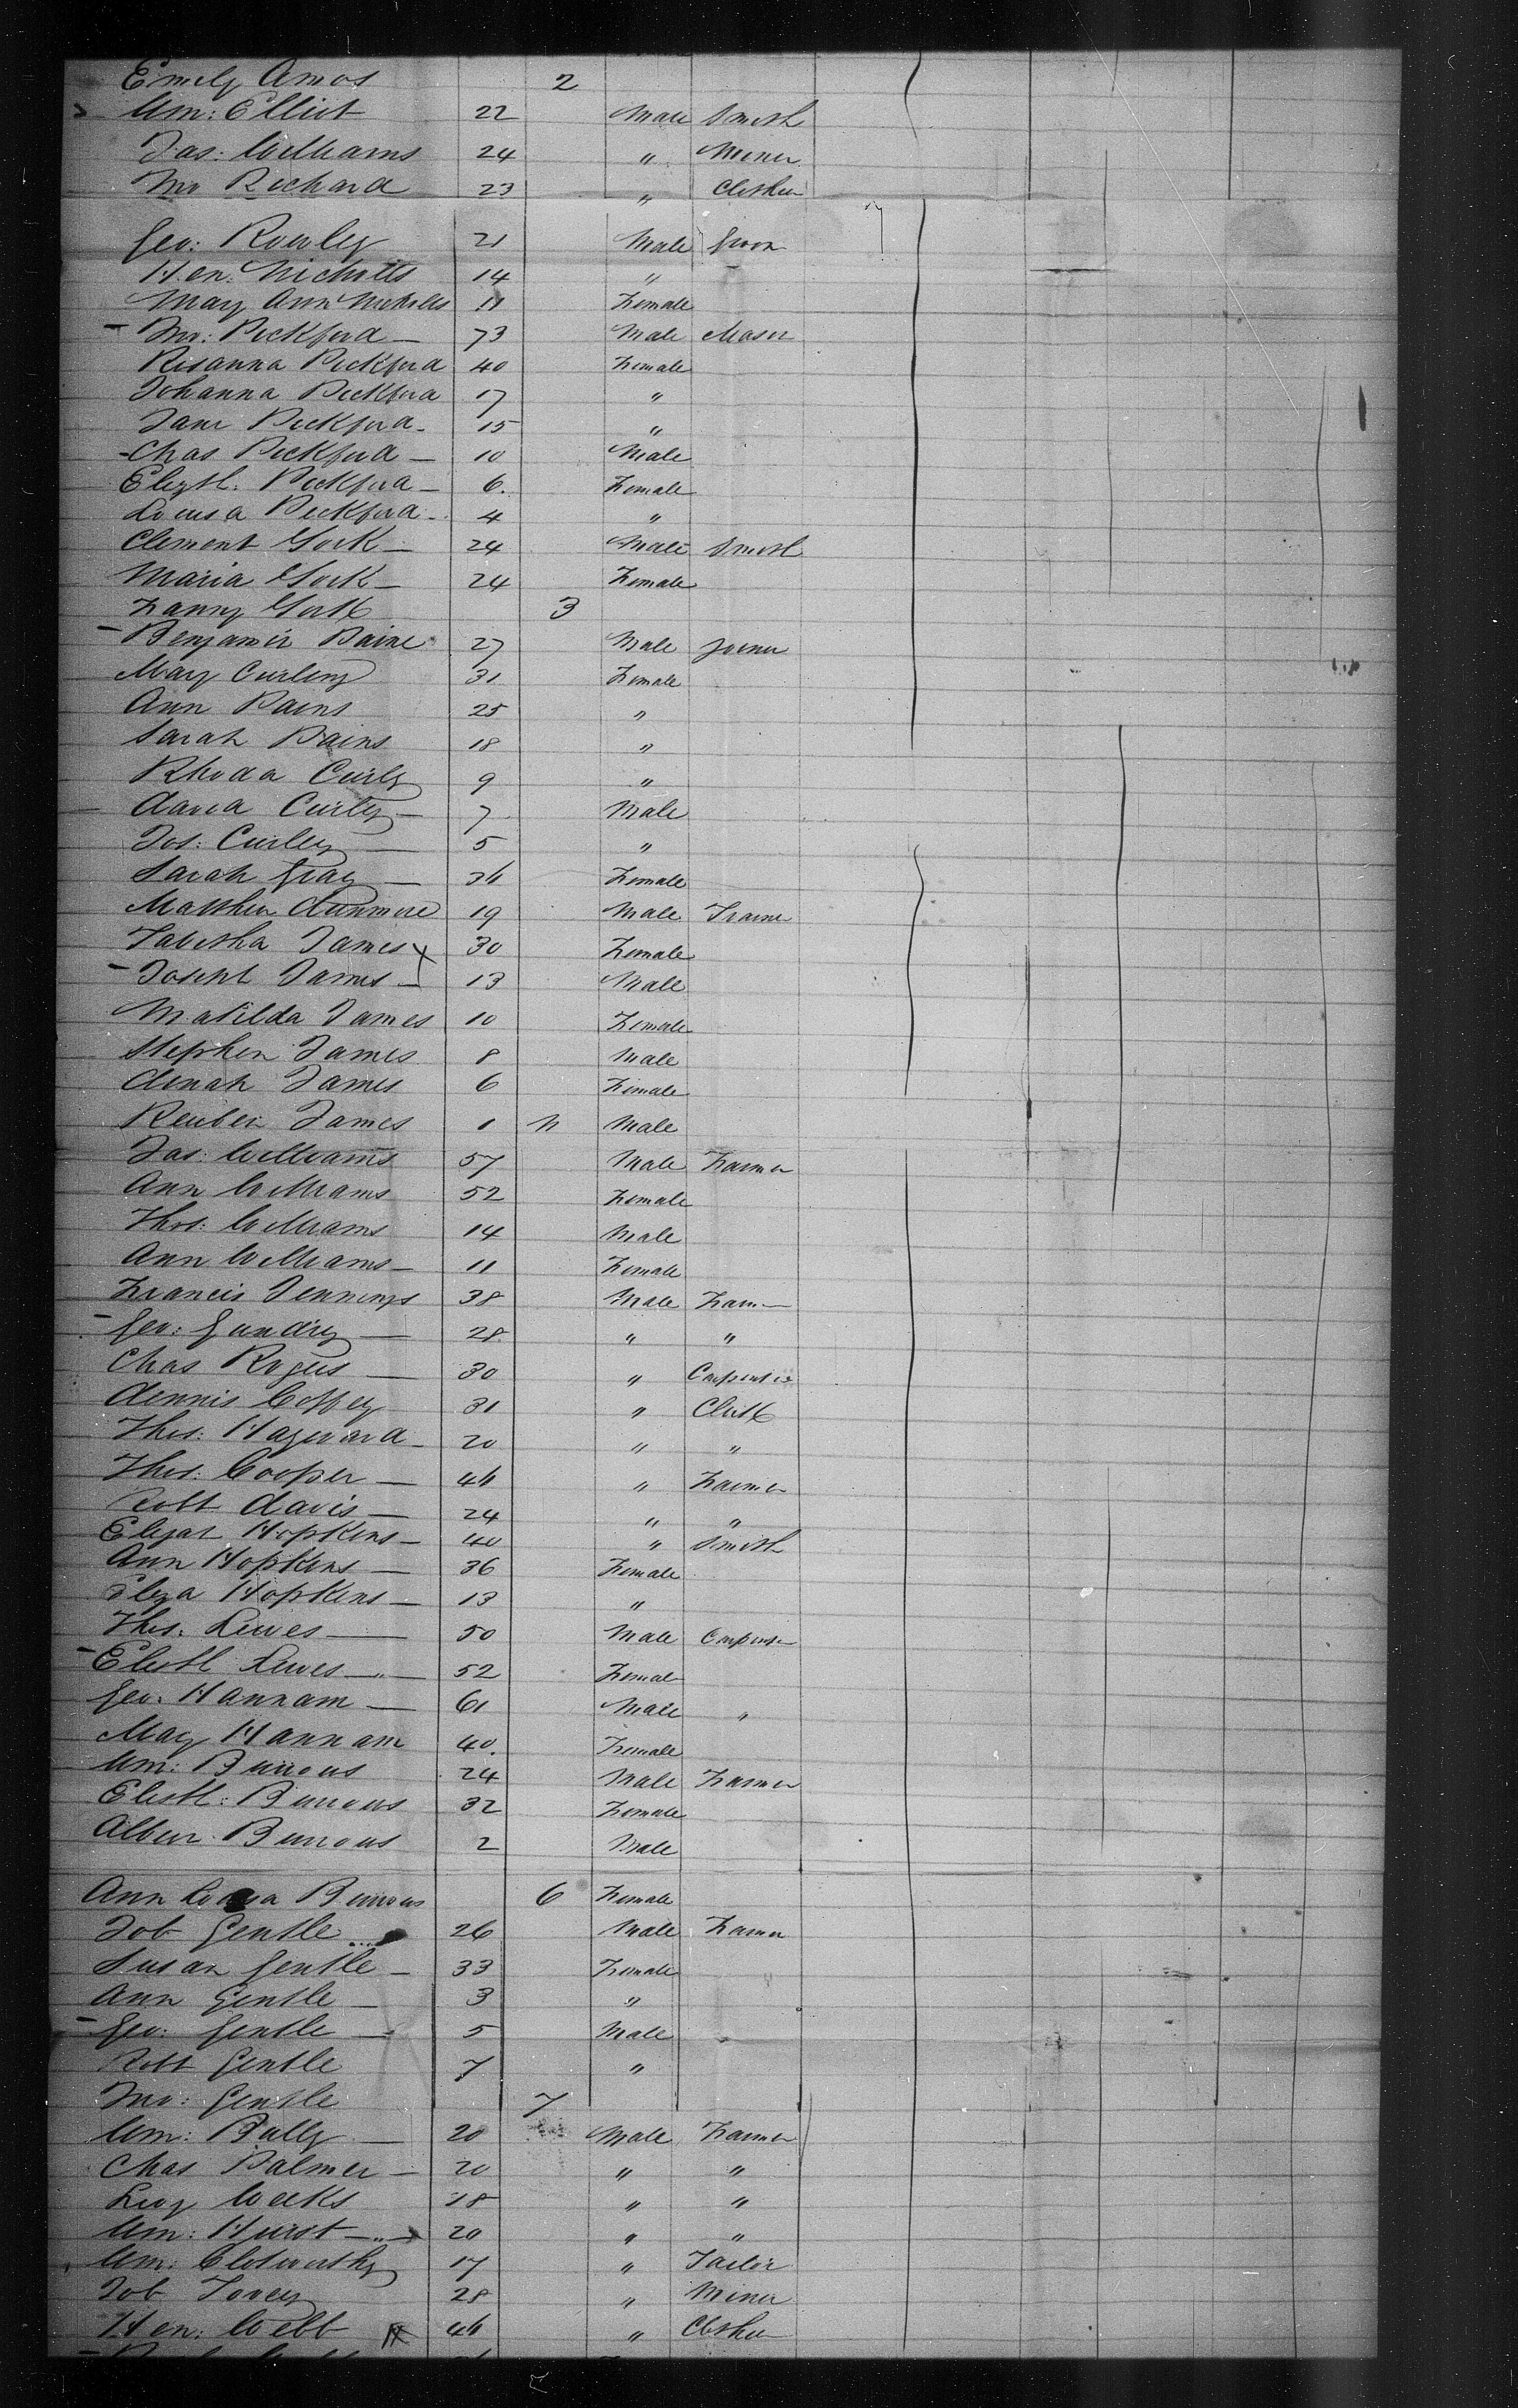 Emily Amos 2
Wm: Elliot 22 Male Smith
Jas: Williams 24 " Miner
Jno Richard 23 " Clothier
Geo: Rowley 21 Male
Hen: Nicholls 14 "
Mary Ann Nicholls 11 Female
Jno: Pickford 73 Male Mason
Rosanna Pickford 40 Female
Johanna Pickford 17 "
Jane Pickford 15 "
Chas Pickford 10 Male
Elizth: Pickford 6 Female
Louisa Pickford 4 "
Clement York 24 Male Smith
Maria York 24 Female
Fanny York 3
Benjamin Baine 27 Male Joiner
Mary Curling 31 Female
Ann Bains 25 "
Sarah Bains 18 "
Rhoda Curly 9 "
David Curley 7 Male
Jos: Curley 5 "
Sarah Gray 36 Female
Matthew Dunmore 19 Male
Tabitha James 30 Female
Joseph James 13 Male
Matilda James 10 Female
Stephen James 8 Male
Dinah James 6 Female
Reuben James 1 Male
Jas: Williams 57 Male Farmer
Ann Williams 52 Female
Thos: Williams 14 Male
Ann Williams 11 Female
Francis Jennings 38 Male Farmer
Geo: Gundry 28 " "
Chas Rogers 30 " Carpenter
Dennis Coffey 31 " Clerk
Thos: Hayward 20 " "
Thos: Cooper 46 " Farmer
Robt Davis 24 " "
Elijah Hopkins 40 " Smith
Ann Hopkins 36 Female
Eliza Hopkins 13 "
Thos. Lewes 50 Male Carpenter
Elizth Lewes 52 Female
Geo: Hannam 61 Male "
Mary Hannam 40 Female
Wm: Burrows 24 Male Farmer
Elizth: Burrows 32 Female
Albert Burrows 2 Male
Ann Burrows 6 Female
Job Gentle 26 Male Farmer
Susan Gentle 33 Female
Ann Gentle 3 "
Geo: Gentle 5 Male
Robt Gentle 7 "
Jno: Gentle 7
Wm: Bally 20 Male Farmer
Chas Palmer 20 " "
Levy Weeks 18 " "
Wm: Hurst 20 " "
Wm: Clotworthy 17 " Tailor
Job Tovey 28 " Miner
Hen: Webb 46 " Clothier